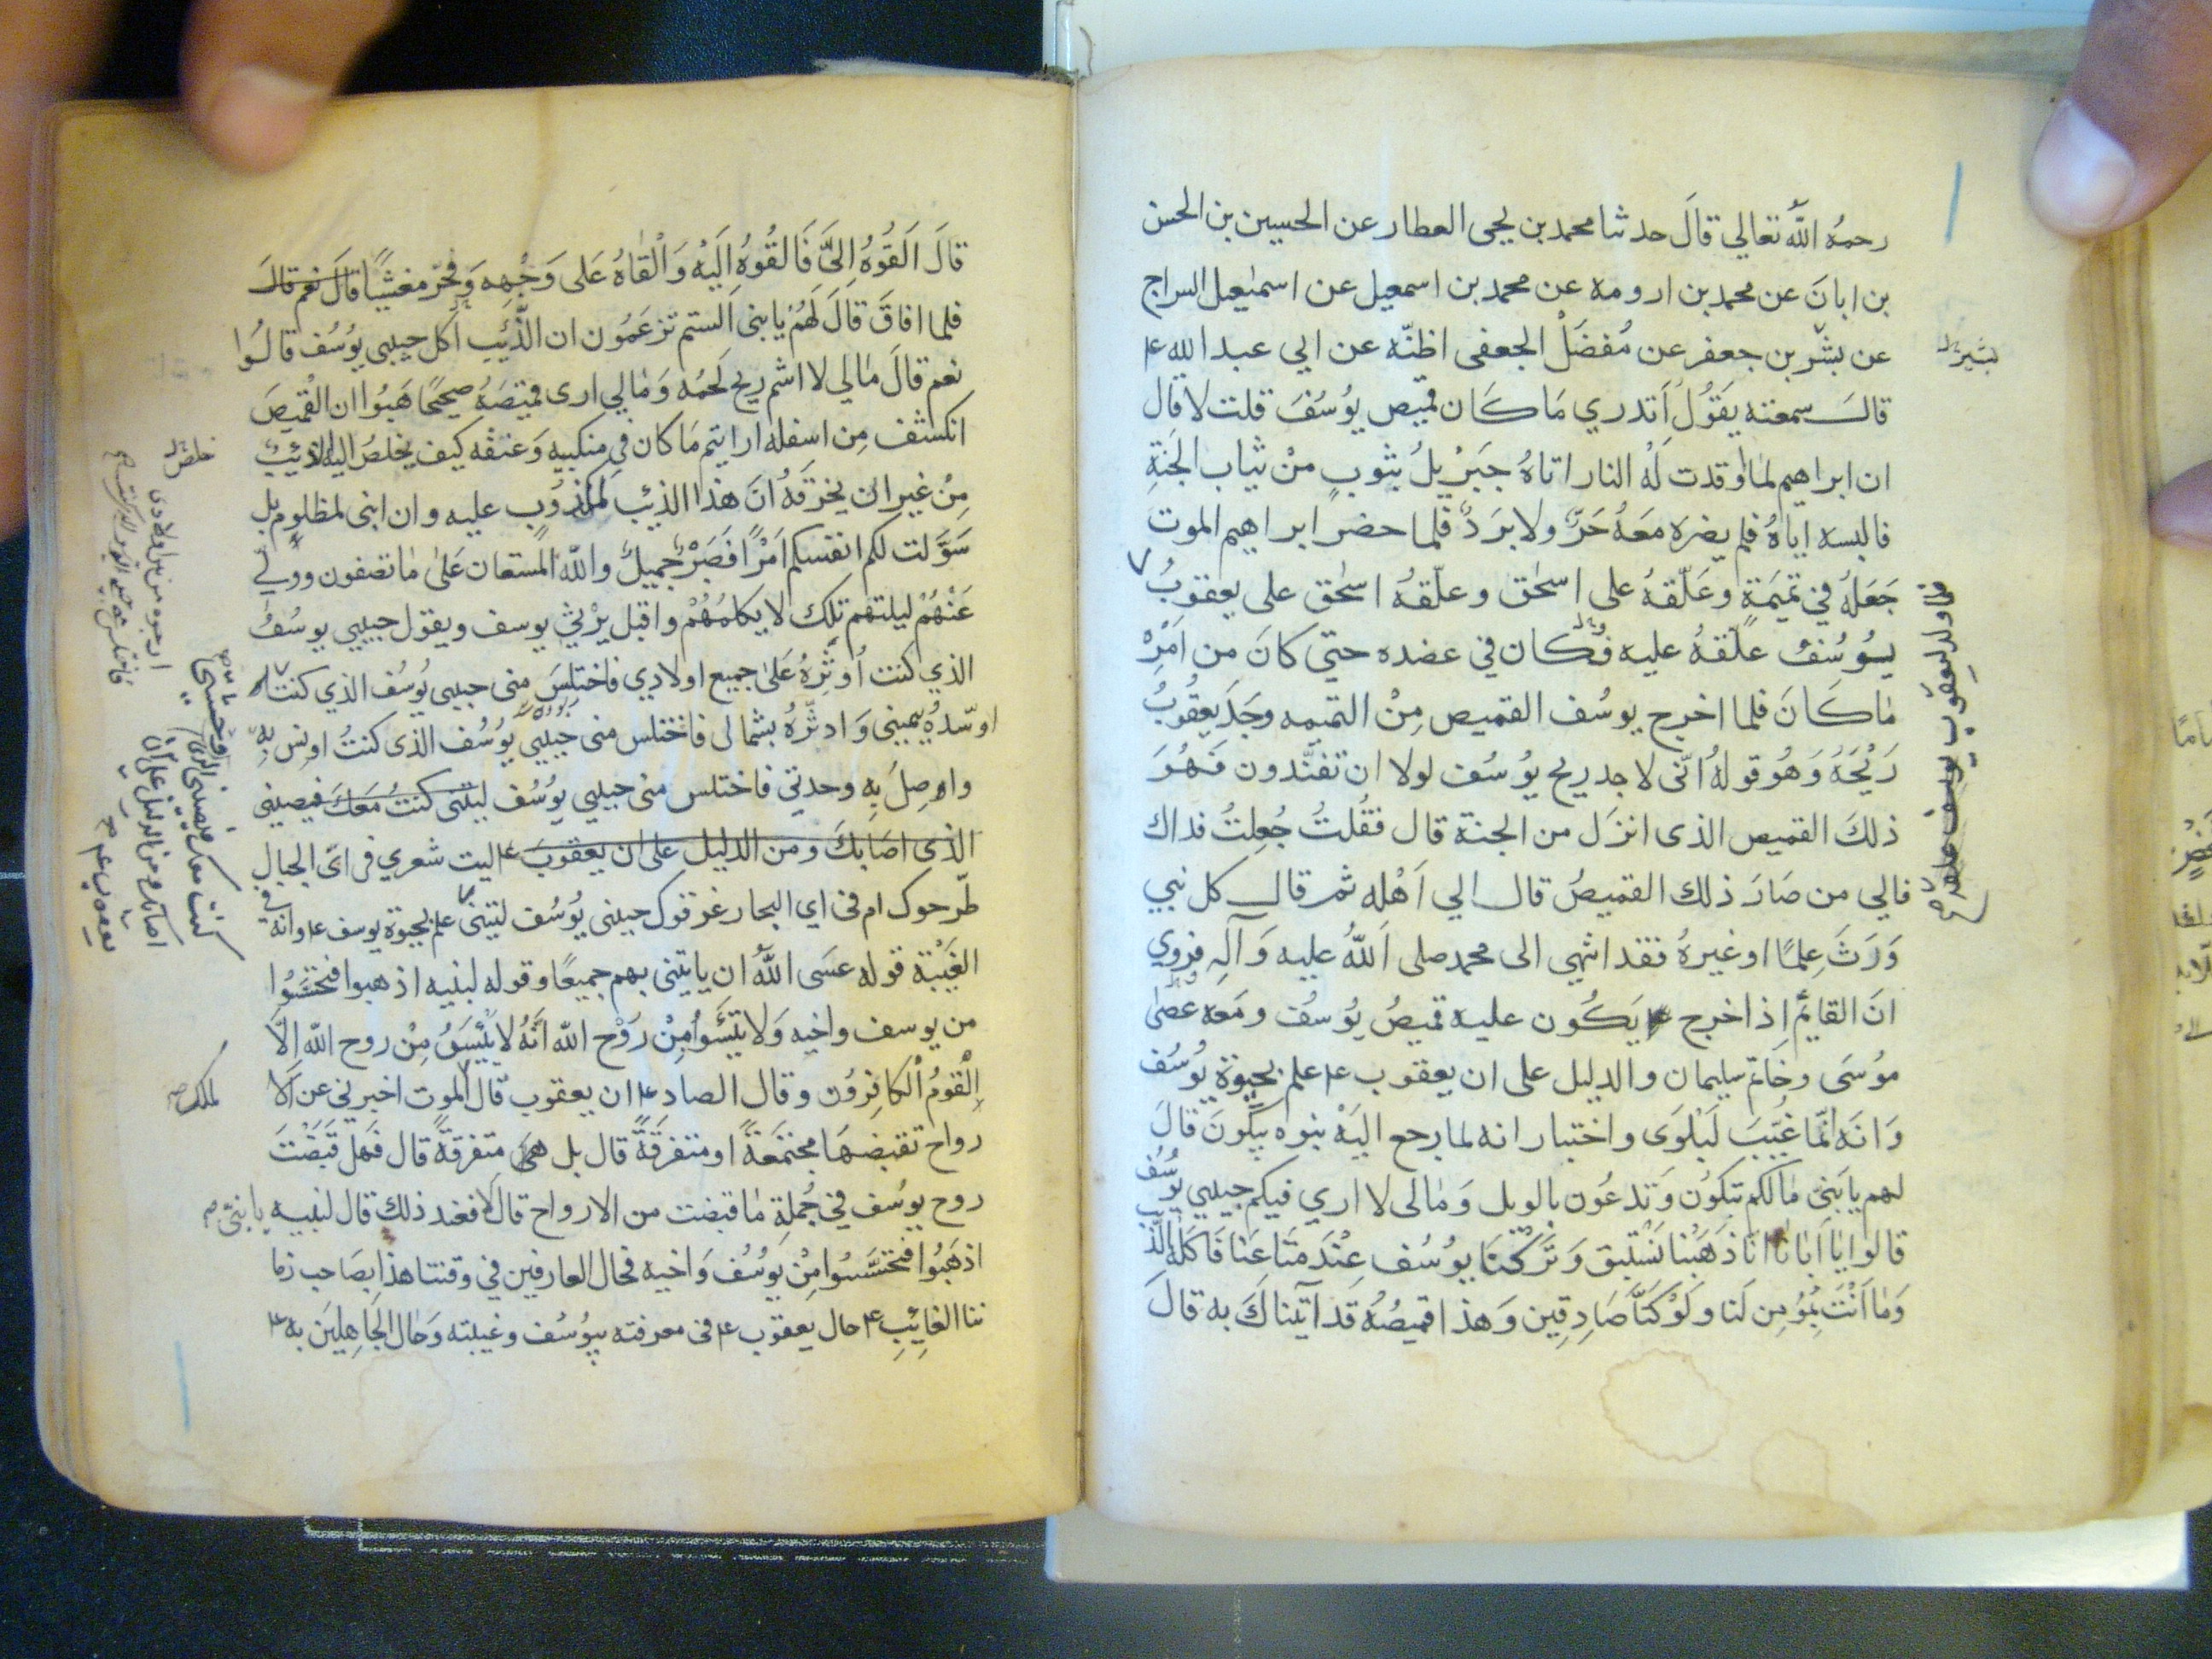 رحمهُ اللّٰه تعالي قالَ حدثنا محمد بن يحيى العطار عن الحسين بن الحسن
بن ابانَ عن محمد بن ارومه عن محمد بن اسمعيل عن اسمعيل السراج
عن بشر بن جعفر عن مُفضَلْ الجعفى اظنّه عن ابي عبد الله ع
بشير
قالَ سمعته يقَوُلُ اَتدري مَا كَان قميص يوُسُفَ قلت لا قال
ان ابراهيم لما اوقدت لهُ النار اتاهُ جبَرْيلُ بثوبٍ منْ ثياب الجَنةِ
فالبسه اياهُ فلم يضره مَعَهُ حَرٌّ ولا بَردٌ فلما حضر ابراهيم الموت
جَعَلهُ في تميَمَةٍ وعَلّقهُ على اسحٰق وعلّقهُ اسحٰق على يعقوبُ
فلما ولد ليعقوب يوسف
يوُسُفُ علّقهُ عليه فكان في عضده حتيّ كانَ من اَمْرِهْ
مٰا كَانَ فلما اخرج يوسُف القميص مِنْ التميمه وجَدَ يعقُوبُ
رَيْحَهُ وَهُو قولهُ انّى لاجد ريح يوُسُف لولا ان تفنّدون فَهُوَ
ذلكَ القميص الذى انزَل من الجنة قال فقُلتُ جُعِلتُ فداك
فالي من صَارَ ذلك القميصُ قال الي اَهْله ثم قال كل نبي
وَرَثَ عِلمًا او غيرهُ فقد انتهى الى محمد صلى اَللّٰهُ عليه وَآلِهِ فروي
انَ القايَم اِذا خرج يَكُون عليه قميصُ يوُسُف ومَعه عصٰى
موُسَى وخَاتم سليمان والدليل على ان يعقوب ع علم بحيوة يوُسُف
وَانَه انمّا غُيّبَ لَبْلوَى واختبار انه لما رجع اليَهْ بنوه يبكُونَ قالَ
لهم يا بَنىّ مٰا لكم تبكوُن وَتدعُون بالويل وَمٰالى لا اري فيكم حبيبي يوُسُف
قالوا يا اَبانَا انا ذهَبْنا نسْتبق وَتَركْنا يوُسُف عِنْدَ متاعَنا فَاكَلهُ الذّئب
وَمٰا اَنْتَ بمُؤمِن لَنا ولَوْ كنّا صَادِقين وَهذا قميصُهُ قد اتيناكَ به قالَ
قالَ اَلقُوهُ اِلىَّ فَالقُوهُ اِلَيْهُ وَالْقٰاهُ عَلى وَجْهِه وَفخَرّ مغشيًّا قالَ نعم قالَ
فلما افاقَ قالَ لَهُم يا بنى الستم تزعَمُون ان الذّئب اكل حبيبى يوُسُف قالوُا
نعم قالَ مٰالي لا اشم ريح لَحمُه وَمٰالي ارى قميَصَهُ صحيحًا هَبُوا ان القميصَ
انكشف مِن اسفله ارايتم مَا كان في منكبيه وَعنقه كيف يخلصُ اليه الذئب
خلص
مِنْ غير ان يخرقَهُ انَ هذا الذيب لمكذوُب عليه وان ابنى لمظلوم بل
سَوّلت لكم انفسكم اَمْرًا فَصَبْرٌ جميلٌ واللّٰه المستعان عَلىٰ مٰا تصفون وولّي
عَنْهُمْ ليلتهم تلك لا يكلمُهُمْ واقبل يَرْثي يوسف ويقول حبيبي يوسُفُ
الذي كنت اُوثرِهُ عَلىٰ جميع اولادي فاختلِسَ منى حبيبى يُوسُف الذي كنت
اوسّدهُ يميني وَادثّرهُ بشمالى فاختلس منى حبيبي يوُسُف الذى كنتُ اونِس بهِ
واوصِلُ بهِ وحدتي فاختلس منى حبيبي يوُسُف ليتنى كنتُ مَعَكَ فيصيبنى
الذى اصَابكَ ومن الدليل على ان يعقوبَ ع ليت شعري فى اىّ الجبال
طّرحوك ام فى اي البحار غرقوك حبيبى يُوسُف ليتنى علم بحيوة يوسف ع وانهُ في
كنت معك فيصيبنى الذى
اصابك ومن الدليل على ان
يعقوب ع
الغَيْبَة قوله عسَى اللّٰهُ ان ياتينى بهم جميعًا وقوله لبنيه اذهبوا فتحسَّسُوا
من يوسف واخيه وَلا تيَئسَوُا مِنْ رَوْح اللّٰه انّهُ لا يَيْئسَ مِنْ روح اللّٰه اِلّا
اِلْقَومُ اْلكافِروُن وقال الصادق ع ان يعقوب قال لملك الموت اخبرني عن الا
لملك
رواح تقبضهَا مجتمَعَةً او متفرقَةً قال بل هَى متفرقةً قال فَهل قبَضْتَ
روح يوسُف في جُملةِ مٰا قبضت من الارواح قال لا فعند ذلك قال لبنيه يا بَنىّ
اذهَبُوا فتحسّسُوا مِنْ يوُسُف وَاخيه فحال العارفين في وقتنا هذا بصَاحب زما
ننا الغايبِ ع حال يعقوب ع فى معرفته بيوُسُف وغيبته وَحٰال الجَاهِلينَ به